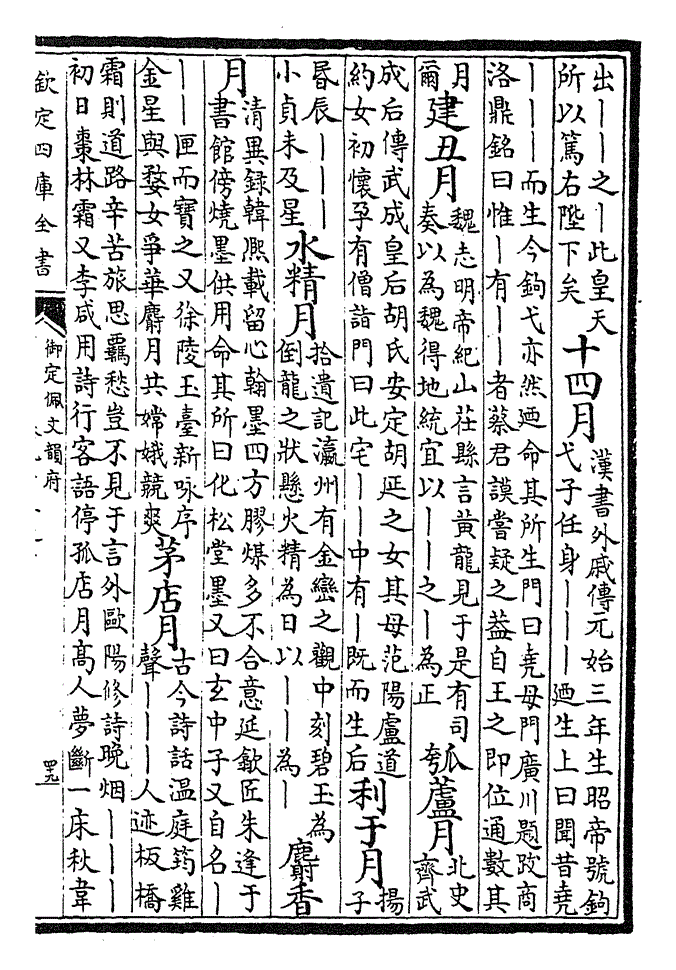 出丨丨之丨此皇天
所以篤右陛下矣
十四月
漢書外戚傳元始三年生昭帝號鉤
弋子任身丨丨丨廼生上曰聞昔堯
丨丨丨而生今鉤弋亦然廼命其所生門曰堯母門廣川題跋商
洛鼎銘曰惟丨有丨丨者蔡君謨嘗疑之葢自王之即位通數其
月
爾
建丑月
魏志明帝紀山茌縣言黄龍見于是有司
奏以為魏得地統宜以丨丨之丨為正
瓠蘆月
北史
齊武
成后傳武成皇后胡氏安定胡延之女其母范陽盧道
約女初懷孕有僧詣門曰此宅丨丨中有丨既而生后
利于月
揚
子
晷辰丨丨丨
小貞未及星
水精月
拾遺記瀛州有金巒之觀中刻碧玉為
倒龍之狀懸火精為日以丨丨為丨
麝香
月
清異録韓熙載留心翰墨四方膠煤多不合意延歙匠朱逢于
書館傍燒墨供用命其所曰化松堂墨又曰玄中子又自名丨
丨丨匣而寶之又徐陵玉臺新咏序
金星與婺女爭華麝月共嫦娥競爽
茅店月
古今詩話温庭筠雞
聲丨丨丨人迹板橋
霜則道路辛苦旅思羈愁豈不見于言外歐陽修詩晚烟丨丨丨
初日棗林霜又李咸用詩行客語停孤店月髙人夢斷一床秋韋
欽定四庫全書
御定佩文韻府
四九